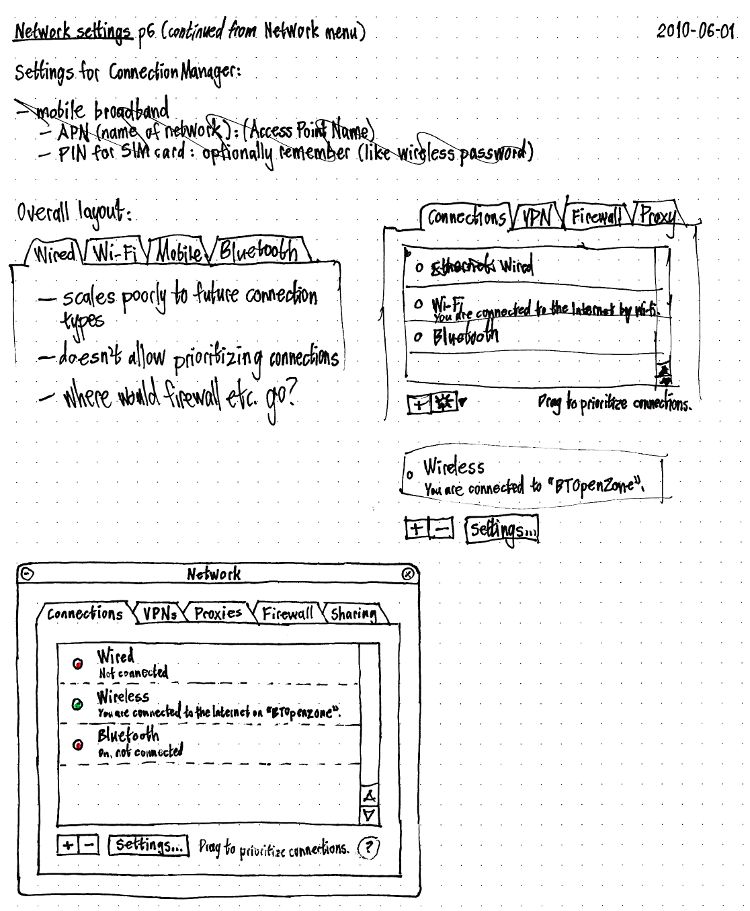 Network settings p6 (continued from Network menu)
2010-06-01
Settings for ConnectionManager:
— mobile broadband
— APN (name of network): (Access Point Name)
— PIN for SIM card: optionally remember (like wireless password)
Overall layout:
Wired Wi-Fi Mobile Bluetooth
— scales poorly to future connection
types
— doesn't allow prioritizing connections
— where would firewall etc. go?
Connections VPN Firewall Proxy
Ethernet Wired
Wi-Fi
You are connected to the Internet by Wi-Fi.
Bluetooth
+
Drag to prioritize connections.
Wireless
You are connected to "BTOpenZone".
+ − Settings...
Network
Connections VPNs Proxies Firewall Sharing
Wired
Not connected
Wireless
You are connected to the Internet on "BTOpenzone".
Bluetooth
On, not connected
+ − Settings... Drag to prioritize connections. ?